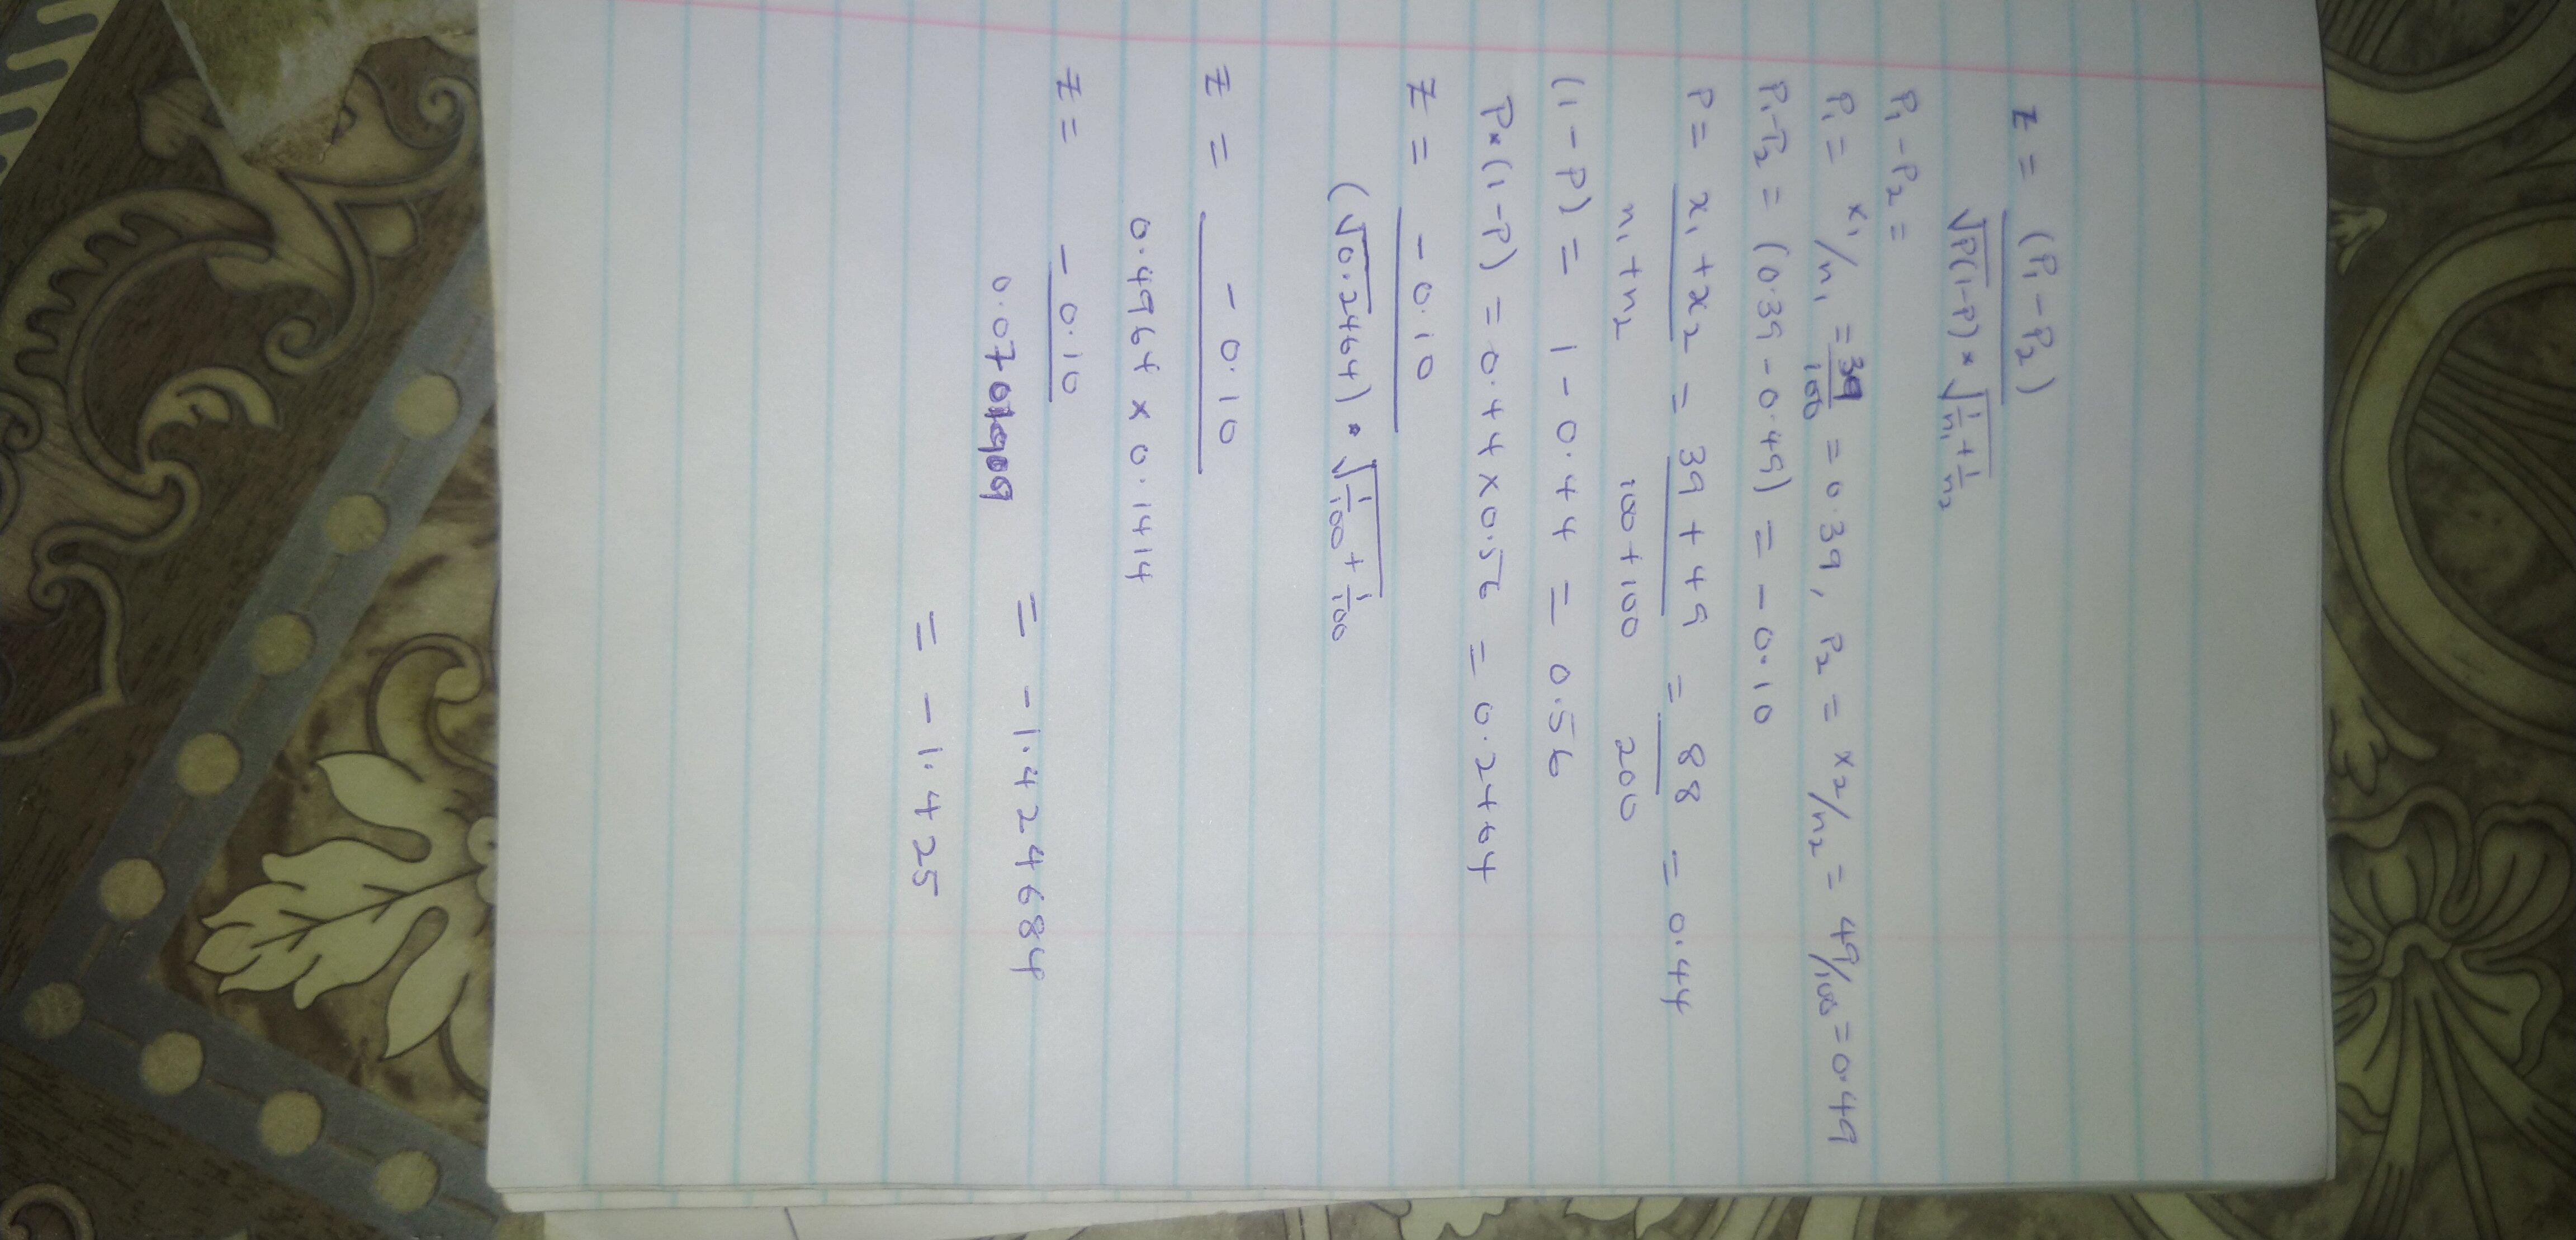 z = (P₁ - P₂)
√P(1-P) * √1/n₁ + 1/n₂
P₁ - P₂ =
P₁ = x₁/n₁ = 39/100 = 0.39, P₂ = x₂/n₂ = 49/100 = 0.49
P₁-P₂ = (0.39 - 0.49) = - 0.10
P = x₁ + x₂ = 39 + 49 = 88 = 0.44
n₁ + n₂ 100 + 100 200
(1 - P) = 1 - 0.44 = 0.56
P*(1-P) = 0.44 x 0.56 = 0.2464
z = - 0.10
(√0.2464) * √1/100 + 1/100
z = - 0.10
0.4964 x 0.1414
z = - 0.10
= - 1.424684
= - 1.425